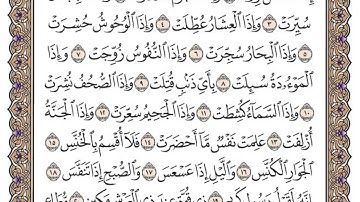 سُيِّرَتْ ٣ وَإِذَا ٱلْعِشَارُ عُطِّلَتْ ٤ وَإِذَا ٱلْوُحُوشُ حُشِرَتْ
٥ وَإِذَا ٱلْبِحَارُ سُجِّرَتْ ٦ وَإِذَا ٱلنُّفُوسُ زُوِّجَتْ ٧ وَإِذَا
ٱلْمَوْءُۥدَةُ سُئِلَتْ ٨ بِأَيِّ ذَنۢبٍ قُتِلَتْ ٩ وَإِذَا ٱلصُّحُفُ نُشِرَتْ
١٠ وَإِذَا ٱلسَّمَآءُ كُشِطَتْ ١١ وَإِذَا ٱلْجَحِيمُ سُعِّرَتْ ١٢ وَإِذَا ٱلْجَنَّةُ
أُزْلِفَتْ ١٣ عَلِمَتْ نَفْسٌ مَّآ أَحْضَرَتْ ١٤ فَلَآ أُقْسِمُ بِٱلْخُنَّسِ ١٥
ٱلْجَوَارِ ٱلْكُنَّسِ ١٦ وَٱلَّيْلِ إِذَا عَسْعَسَ ١٧ وَٱلصُّبْحِ إِذَا تَنَفَّسَ ١٨